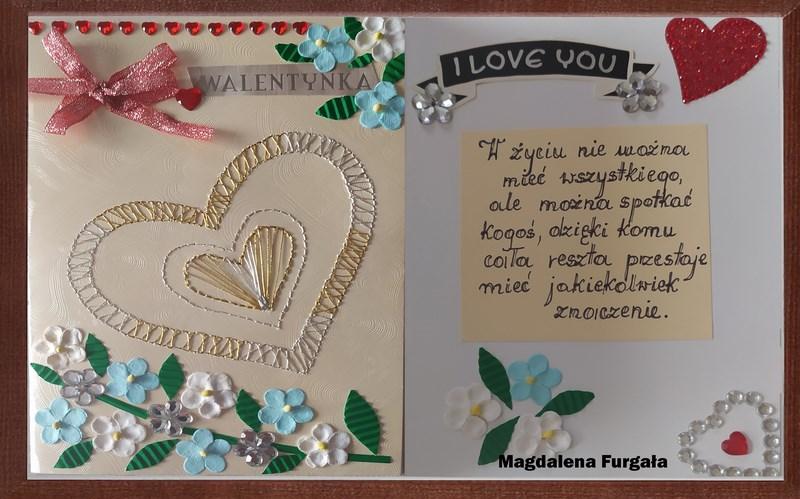 WALENTYNKA
I LOVE YOU
W życiu nie można
mieć wszystkiego,
ale można spotkać
kogoś, dzięki komu
cała reszta przestaje
mieć jakiekolwiek
znaczenie.
Magdalena Furgała